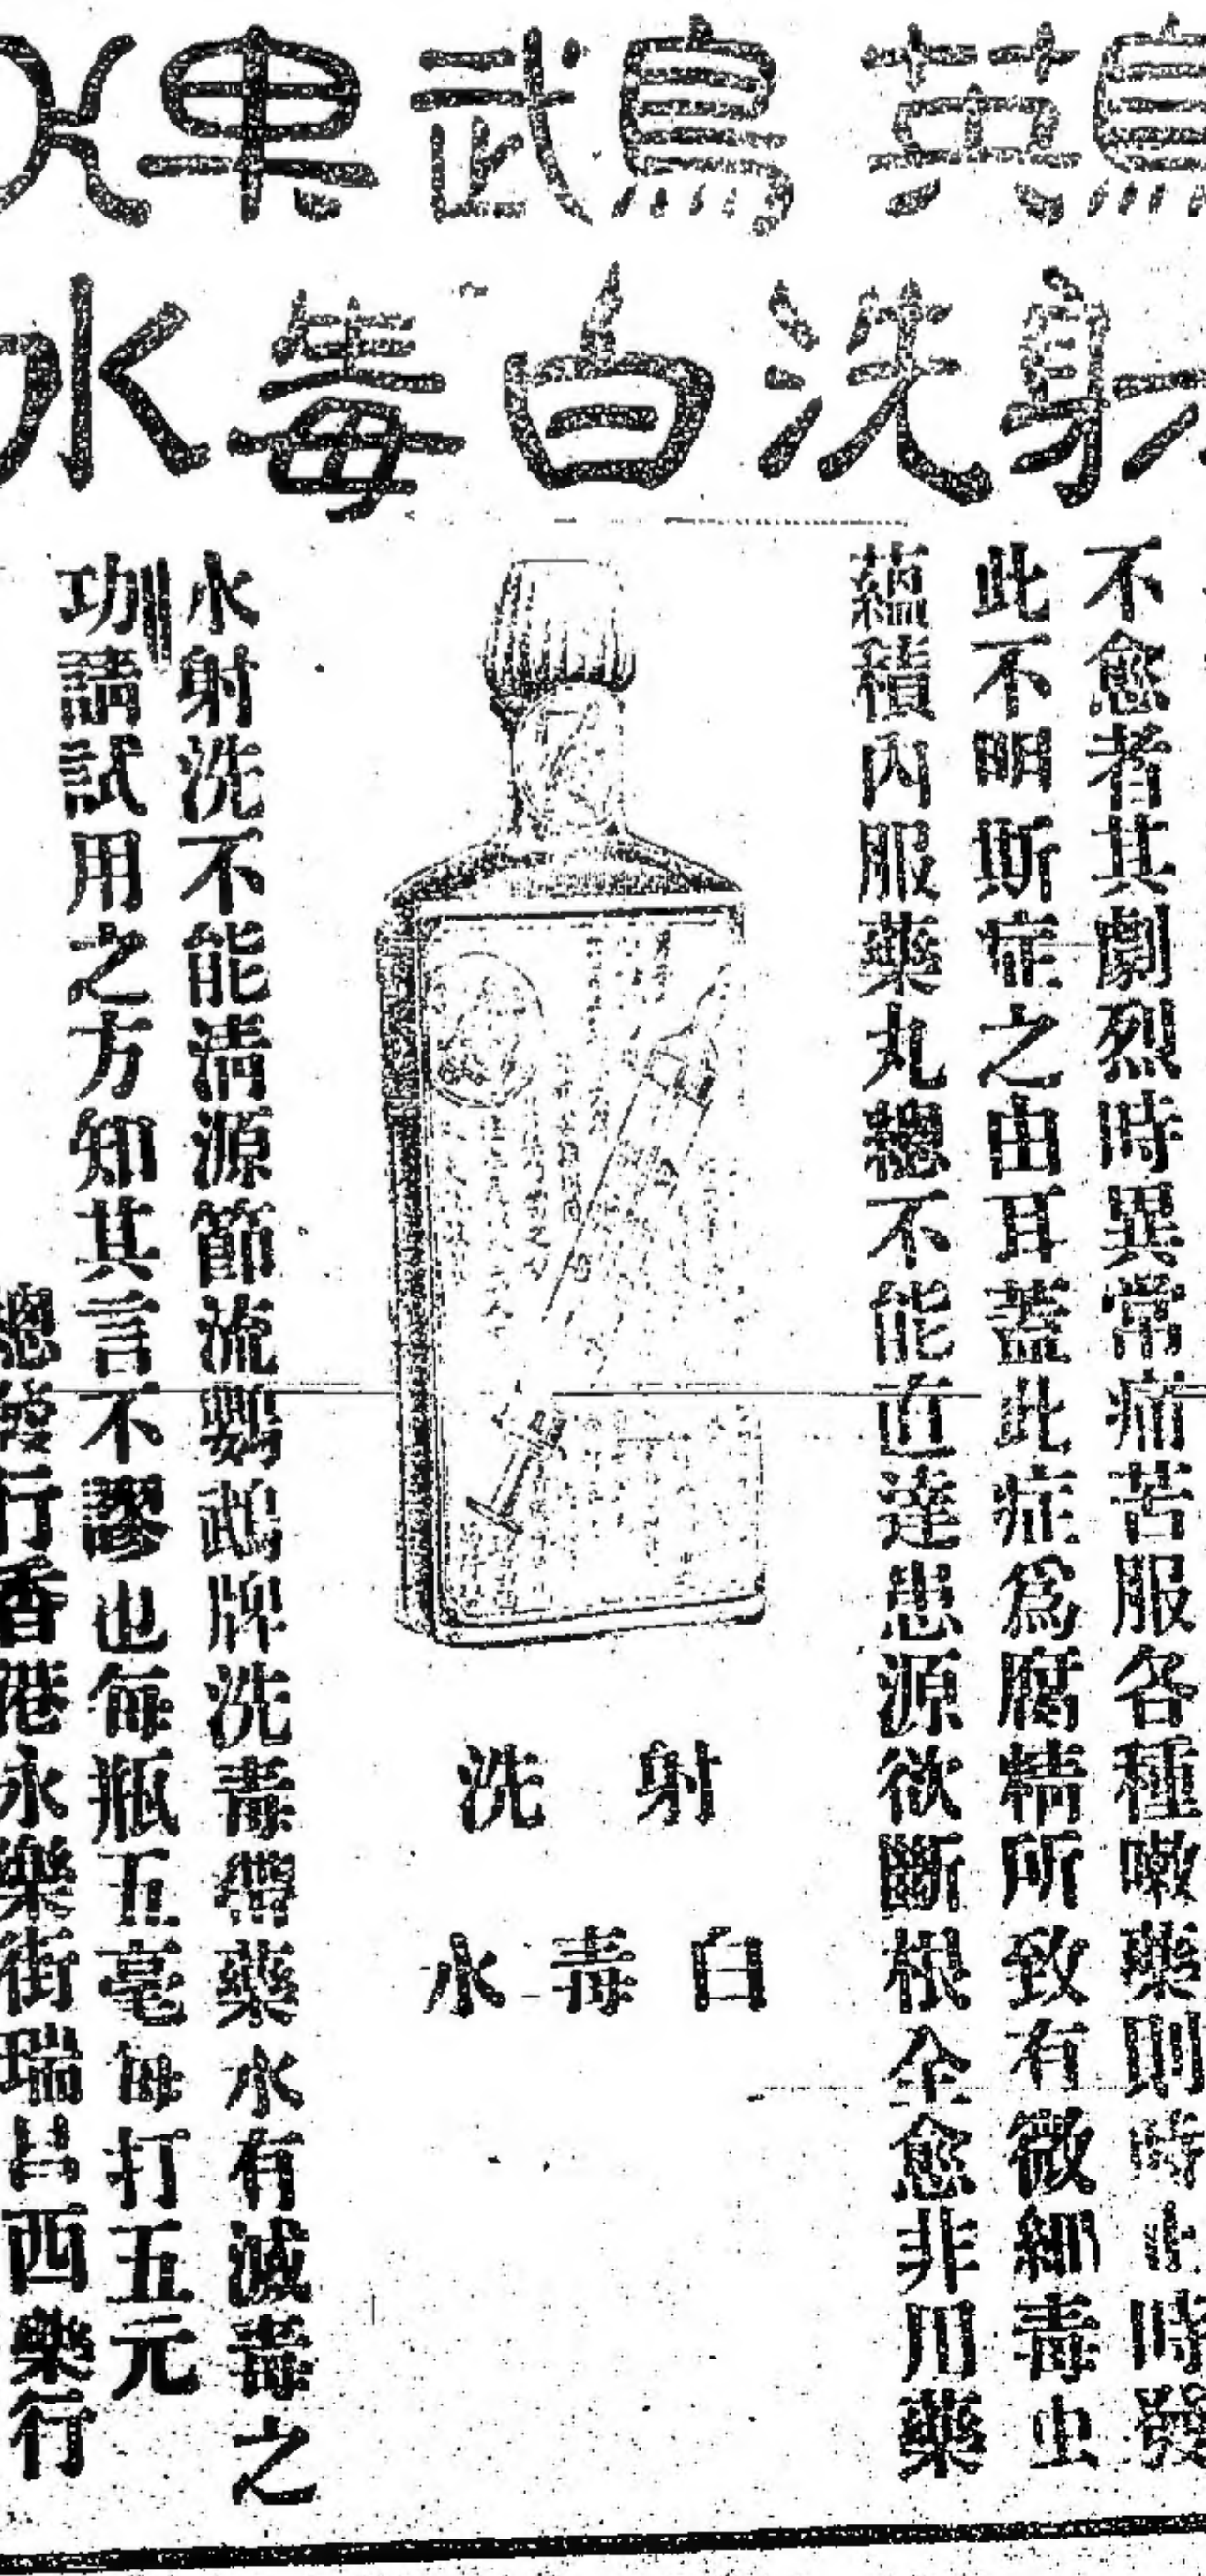 䳟鵡
射洗白毒水
不愈者其劇烈時異常痛苦服各種嗽藥則時止時發
此不明斯症之由耳蓋此症爲腐精所致有微細毒虫
蘊積內服藥丸總不能直達患源欲斷根全愈非用藥
射洗
白毒水
水射洗不能清源節流鸚鵡牌洗毒帶藥水有滅毒之
功請試用之方知其言不謬也每瓶五毫每打五元
總發行香港永樂街瑞昌西藥行